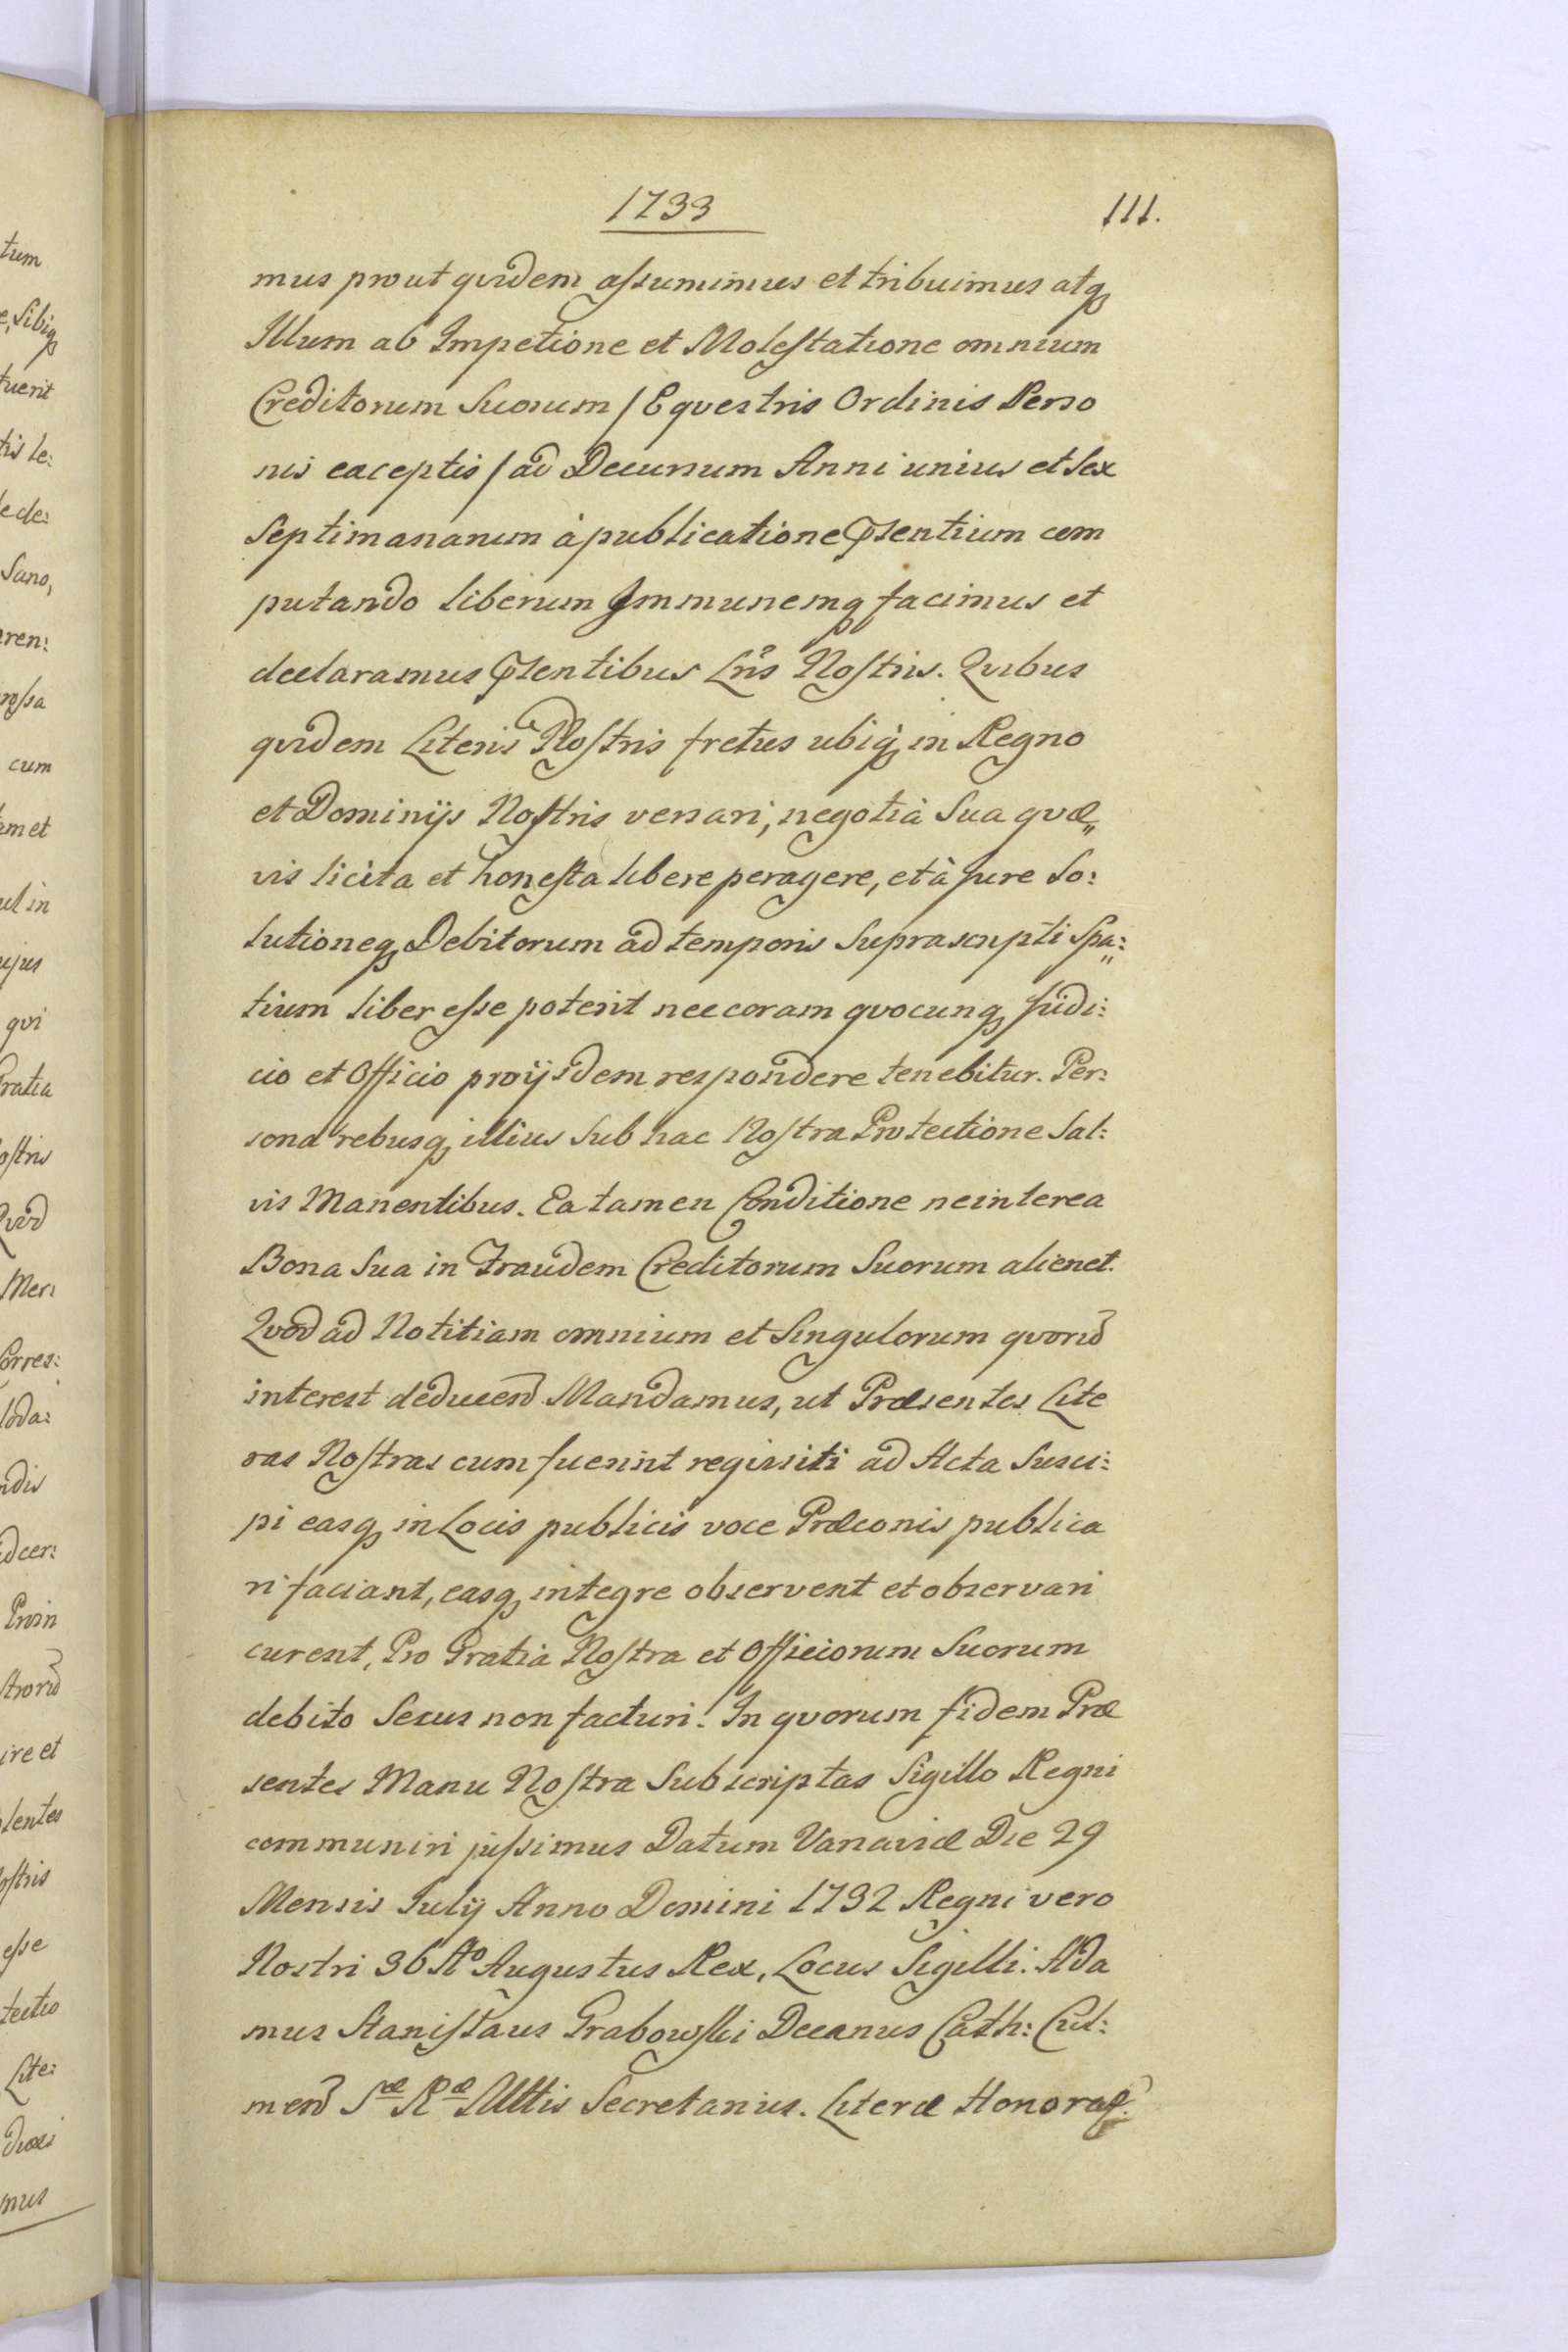 1733
111.
mus prout qvidem assumimus et tribuimus atq;
Illum ab Impetione et Molestatione omnium
Creditorum Suorum / Eqvestris Ordinis Perso
nis exceptis / ad Decursum Anni unius et Sex
Septimanarum à publicatione Psentium com
putando liberum Immunemq; facimus et
declaramus Psentibus Lris Nostris. Qvibus
qvidem Literis Nostris fretus ubiq; in Regno
et Dominijs Nostris versari, negotia Sua qvæ„
vis licita et honesta libere peragere, et à jure So:
lutioneq; Debitorum ad temporis Suprascripti Spa:
tium liber esse poterit nec coram qvocunq; Judi:
cio et Officio pro ijsdem respondere tenebitur. Per:
sona rebusq; illius Sub hac Nostra Protectione Sal:
vis Manentibus. Ea tamen Conditione ne interea
Bona Sua in Fraudem Creditorum Suorum alienet.
Qvod ad Notitiam omnium et Singulorum qvorũ
interest deducend Mandamus, ut Præsentes Lite
ras Nostras cum fuerint reqvisiti ad Acta Susci:
pi easq; in Locis publicis voce Præconis publica
ri faciant, easq; integre observent et observari
curent, Pro Gratia Nostra et Officiorum Suorum
debito Secus non facturi. In qvorum fidem Præ
sentes Manu Nostra Subscriptas Sigillo Regni
communiri jussimus Datum Varaviæ Die 29
Mensis Julij Anno Domini 1732 Regni vero
Nostri 36 Aº Augustus Rex, Locus Sigilli. Ada
mus Stanislaus Grabowski Decanus Cath: Cul:
men S<sup>æ</sup> R<sup>æ</sup> Mttis Secretarius. Literæ Honorap:
tum
e, Sibiq;
tuerit
tis le:
Sano,
cum
am et
ul in
ujus
qvi
Gratia
ostris
Qvod
Mer:
Corres:
ndis
ire et
ostris
esse
tectio
Lite:
mus